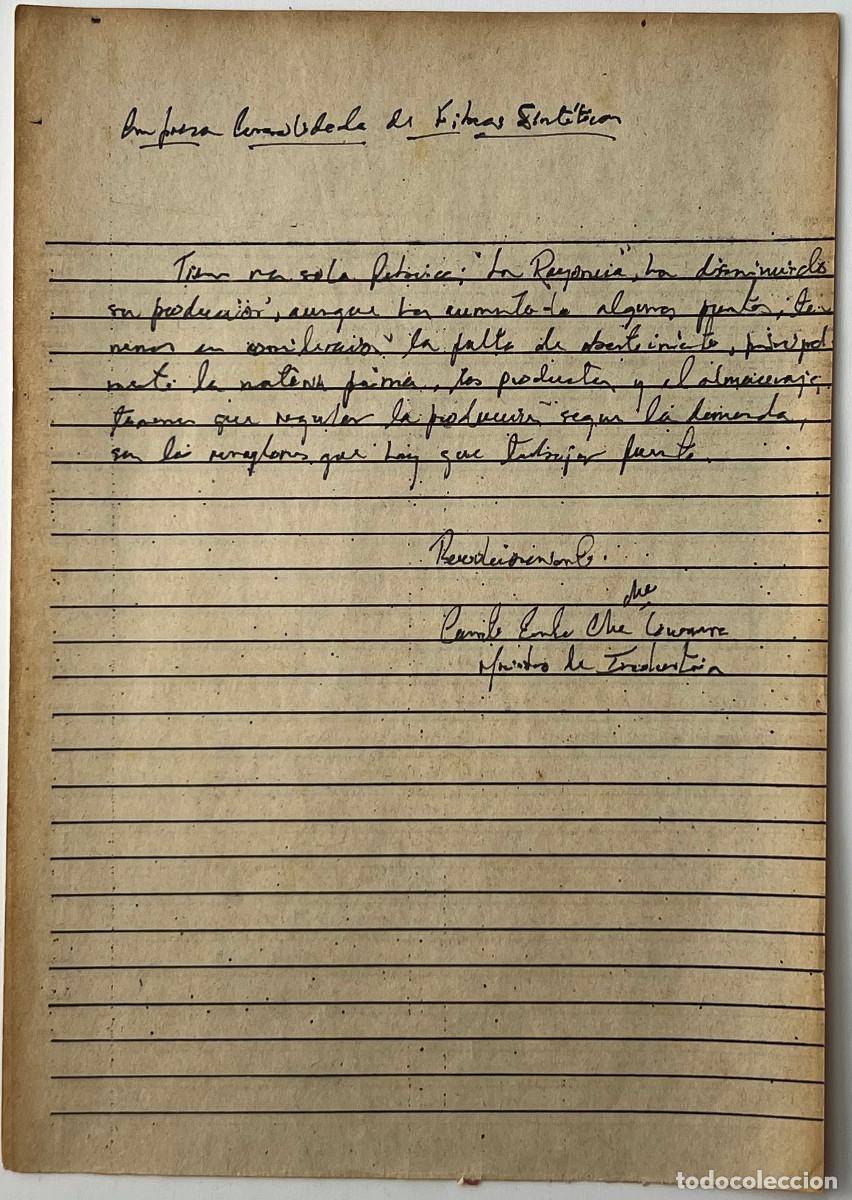 Empresa Consolidada de Fibras Sintéticas
Tiene una sola fabrica; "La Rayonera", ha disminuido
su producción, aunque ha aumentado algunos puntos, te-
nemos en consideración la falta de abastecimiento, principal
mente la materia prima, los productos y el almacenaje,
tenemos que regular la producción segun la demanda,
son los renglones que hay que trabajar fuerte.
Revolucionariamente.
che
Che Guevara
Ministro de Industria
todocoleccion